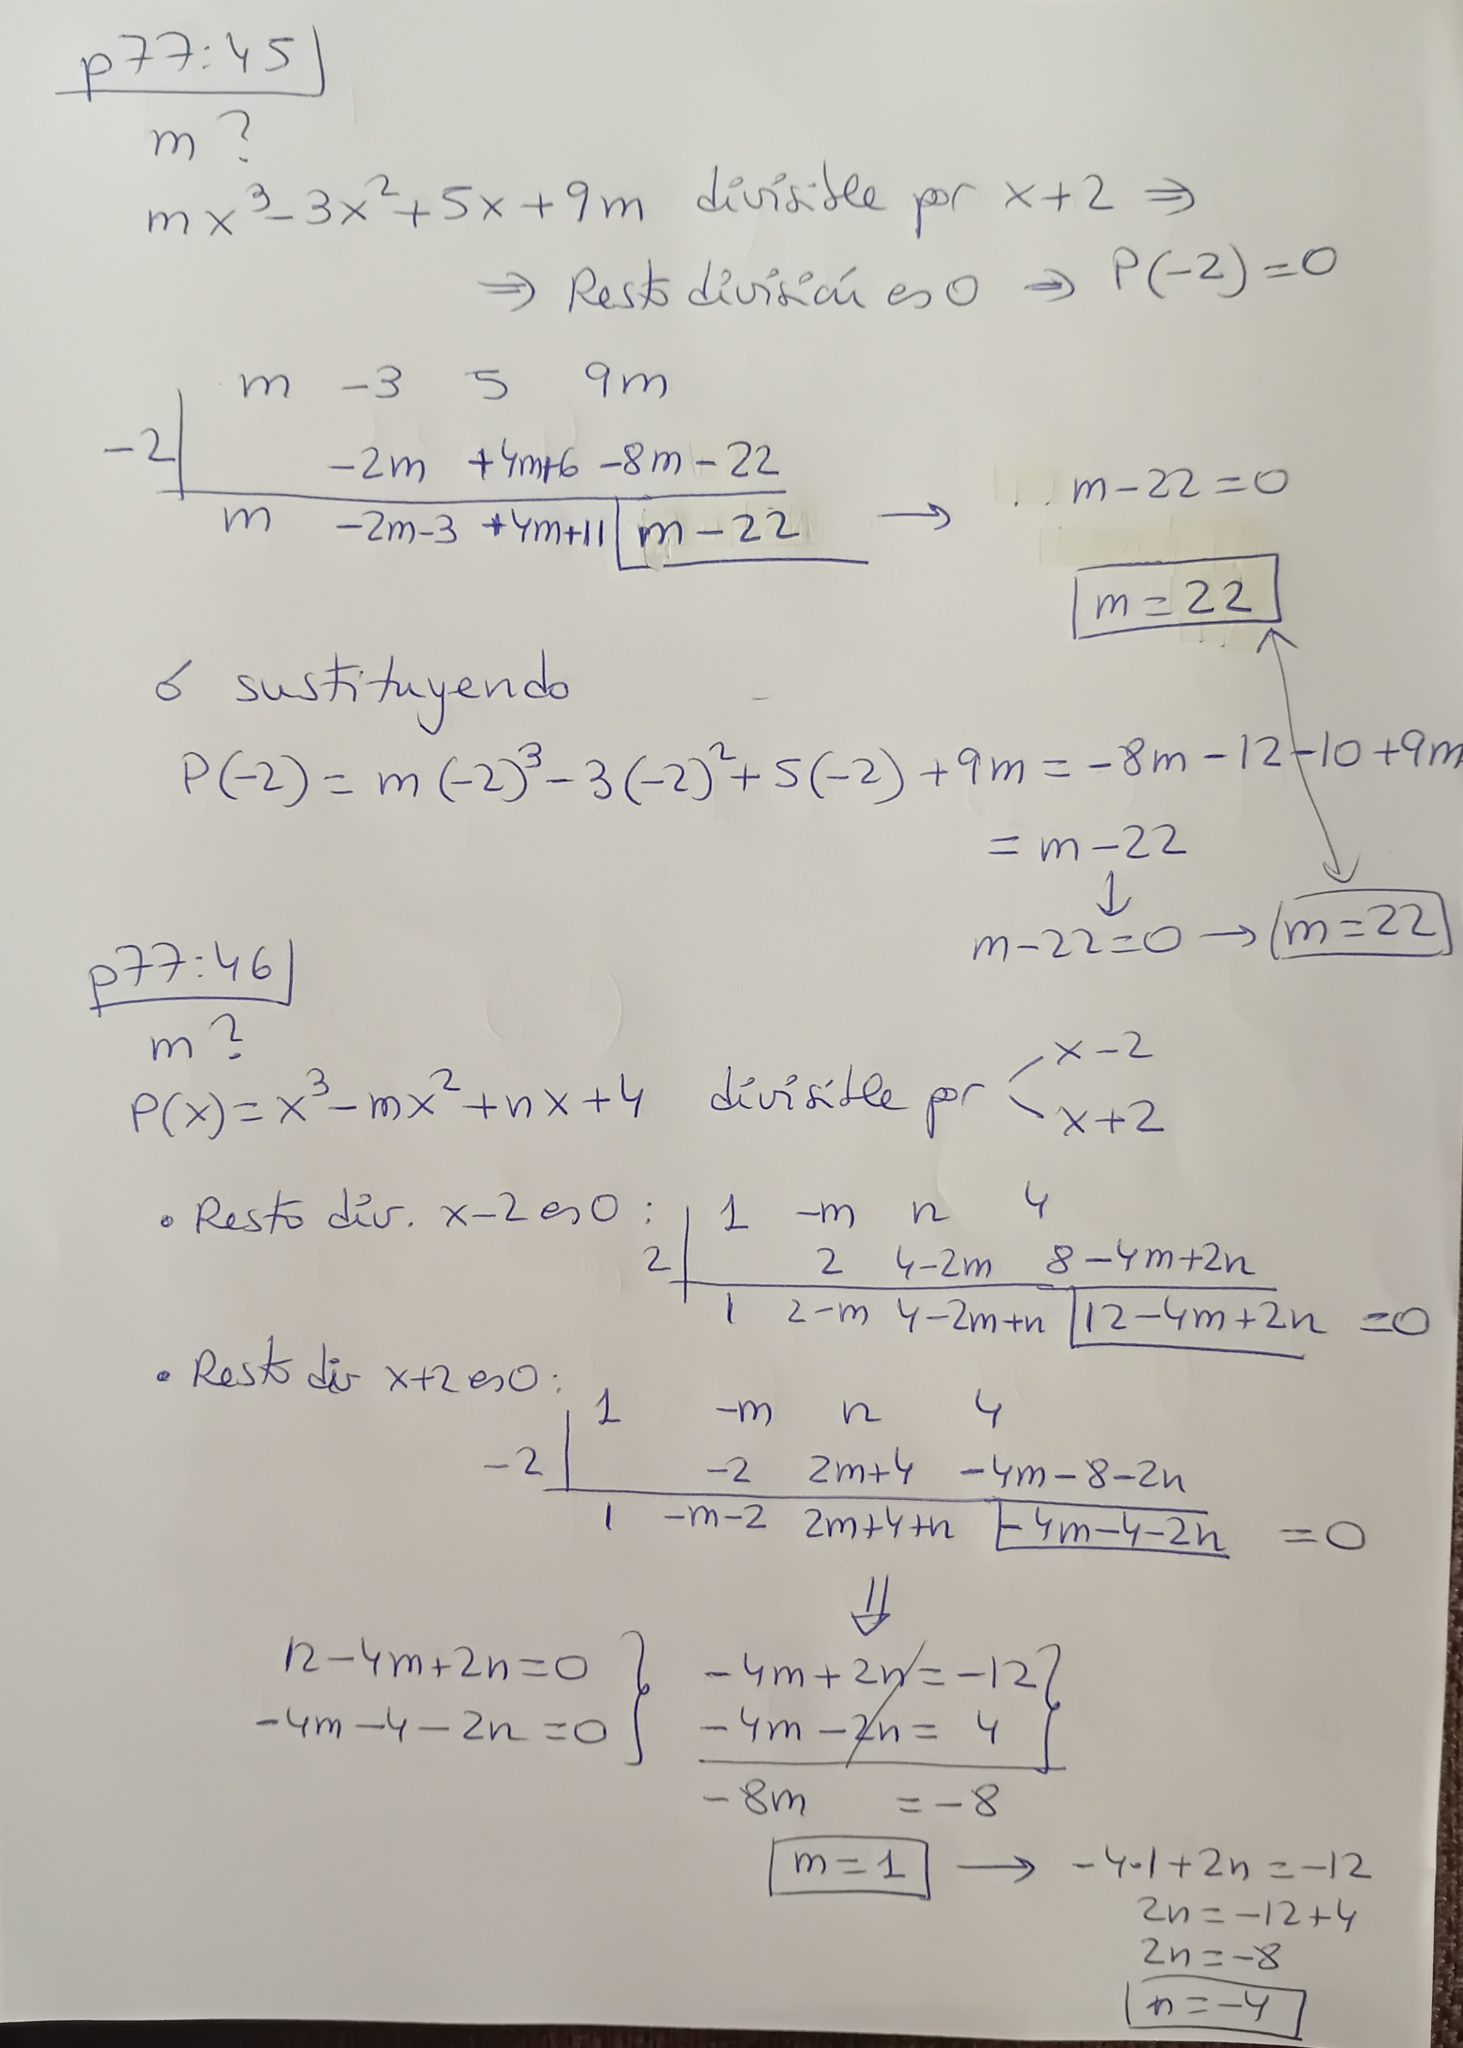 p77:45
m?
mx³-3x²+5x+9m divisible por x+2 ⇒
⇒ Resto división es 0 ⇒ P(-2)=0
m -3 5 9m
-2 | -2m +4m+6 -8m-22
m -2m-3 +4m+11 | m-22 → m-22=0
m=22
ó sustituyendo
P(-2) = m(-2)³-3(-2)²+5(-2)+9m = -8m-12-10+9m
= m-22
↓
m-22=0 → m=22
p77:46
m?
P(x)=x³-mx²+nx+4 divisible por < x-2
x+2
• Resto div. x-2 es 0: 1 -m n 4
2 | 2 4-2m 8-4m+2n
1 2-m 4-2m+n | 12-4m+2n =0
• Resto div x+2 es 0:
1 -m n 4
-2 | -2 2m+4 -4m-8-2n
1 -m-2 2m+4+n | -4m-4-2n =0
⇓
12-4m+2n=0 } -4m+2n=-12 }
-4m-4-2n=0 } -4m-2n= 4 }
-8m =-8
m=1 → -4·1+2n=-12
2n=-12+4
2n=-8
n=-4